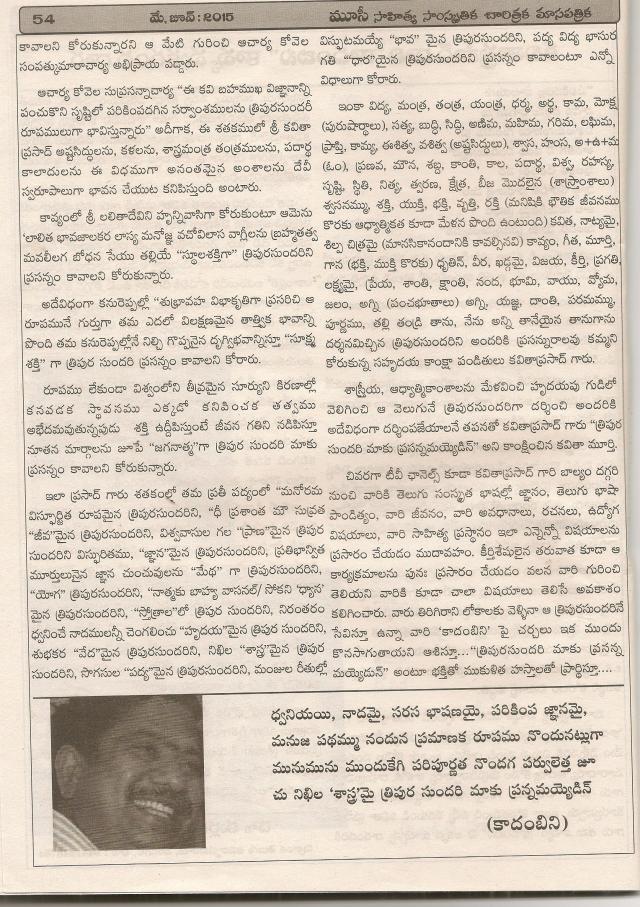 54 మే, జూన్ : 2015 మూసీ సాహిత్య సాంస్కృతిక చారిత్రక మాసపత్రిక
కావాలని కోరుకున్నారని ఆ మేటి గురించి ఆచార్య కోవెల
సంపత్కుమారాచార్య అభిప్రాయ పడ్డారు.
ఆచార్య కోవెల సుప్రసన్నాచార్య “ఈ కవి బహముఖ విజ్ఞానాన్ని
పంచుకొని సృష్టిలో పరికింపదగిన సర్వాంశములను త్రిపురసుందరీ
రూపములుగా భావిస్తున్నారు” అదీగాక, ఈ శతకములో శ్రీ కవితా
ప్రసాద్ అష్టసిద్ధులను, కళలను, శాస్త్రమంత్ర తంత్రములను, పదార్థ
కాలాదులను ఈ విధముగా అనంతమైన అంశాలను దేవీ
స్వరూపాలుగా భావన చేయుట కనిపిస్తుంది అంటారు.
కావ్యంలో శ్రీ లలితాదేవిని హృన్నివాసిగా కోరుకుంటూ ఆమెను
‘లాలిత భావజాలకర లాస్య మనోజ్ఞ వచోవిలాస వాగ్లీలను బ్రహ్మతత్వ
మవలీలగ బోధన సేయు తల్లియే “స్థూలశక్తిగా” త్రిపురసుందరిని
ప్రసన్నం కావాలని కోరుకున్నారు.
అదేవిధంగా కనురెప్పల్లో “శుభ్రావహ విభాకృతిగా ప్రసరించి ఆ
రూపమునే గుర్తుగా తమ ఎదలో విలక్షణమైన తాత్త్విక భావాన్ని
పొంది తమ కనురెప్పల్లోనే నిల్పి గొప్పనైన దృగ్విభవాన్నిస్తూ “సూక్ష్మ
శక్తి” గా త్రిపుర సుందరి ప్రసన్నం కావాలని కోరారు.
రూపము లేకుండా విశ్వంలోని తీవ్రమైన సూర్యుని కిరణాల్లో
కనవడక స్థావనము ఎక్కడో కనిపించక తత్వము
అభేదమవుతున్నపుడు శక్తి ఉద్దీపిస్తుంటే జీవన గతిని నడిపిస్తూ
నూతన మార్గాలను జూపే “జగనాత్మ”గా త్రిపుర సుందరి మాకు
ప్రసన్నం కావాలని కోరుకున్నారు.
ఇలా ప్రసాద్ గారు శతకంల్లో తమ ప్రతీ పద్యంలో “మనోరమ
విస్ఫూర్జిత రూపమైన త్రిపురసుందరిని, “ధీ ప్రశాంత మౌ సువ్రత
“జీవ”మైన త్రిపురసుందరిని, విశ్వవాసుల గల “ప్రాణ”మైన త్రిపుర
సుందరిని విస్ఫురితము, “జ్ఞాన”మైన త్రిపురసుందరిని, ప్రతిభాన్విత
మూర్తులునైన జ్ఞాన చుంచువులను “మేథ” గా త్రిపురసుందరిని,
“యోగ” త్రిపురసుందరిని, “నాత్మకు బాహ్య వాసనల్/ సోకని ‘ధ్యాన’
మైన త్రిపురసుందరిని, “స్తోత్రాల”లో త్రిపుర సుందరిని, నిరంతరం
ధ్వనించే నాదములన్నీ చెంగలించు “హృదయ”మైన త్రిపుర సుందరిని,
శుభకర “వేద”మైన త్రిపురసుందరిని, నిఖిల “శాస్త్ర”మైన త్రిపుర
సుందరిని, సొగసుల “పద్య”మైన త్రిపురసుందరిని, మంజుల రీతుల్లో
విస్ఫుటమయ్యే “భావ” మైన త్రిపురసుందరిని, పద్య విద్య భాసుర
గతి “‘ధార”యైన త్రిపురసుందరిని ప్రసన్నం కావాలంటూ ఎన్నో
విధాలుగా కోరారు.
ఇంకా విద్య, మంత్ర, తంత్ర, యంత్ర, ధర్మ, అర్థ, కామ, మోక్ష
(పురుషార్థాలు), సత్య, బుద్ధి, సిద్ధి, అణిమ, మహిమ, గరిమ, లఘిమ,
ప్రాప్తి, కామ్య, ఈశిత్వ, వశిత్వ (అష్టసిద్ధులు), శ్వాస, హంస, అ+ఉ+మ
(ఓం), ప్రణవ, మౌన, శబ్ద, కాంతి, కాల, పదార్థ, విశ్వ, రహస్య,
సృష్టి, స్థితి, నిత్య, త్వరణ, క్షేత్ర, బీజ మొదలైన (శాస్త్రాంశాలు)
శ్వసనమ్ము, శక్తి, యుక్తి, భక్తి, వృత్తి, రక్తి (మనిషికి భౌతిక జీవనము
కొరకు ఆధ్యాత్మికత కూడా మేళన పొంది ఉంటుంది) కవిత, నాట్యమై,
శిల్ప చిత్రమై (మానసికానందానికి కావల్సినవి) కావ్యం, గీత, మూర్తి,
గాన (భక్తి, ముక్తి కొరకు) ధృతిన్, వీర, ఖడ్గమై, విజయ, కీర్తి, ప్రగతి,
లక్ష్యమై, ప్రేయ, శాంతి, క్షాంతి, నంద, భూమి, వాయు, వ్యోమ,
జలం, అగ్ని (పంచభూతాలు) అగ్ని, యజ్ఞ, దాంతి, పరమమ్ము,
పూర్ణము, తల్లి తండ్రి తాను, నేను అన్ని తానేయైన తానుగాను
దర్శనమిచ్చిన త్రిపురసుందరిని అందరికి ప్రసన్నురాలవు కమ్మని
కోరుకున్న సహృదయ కాంక్షా పండితులు కవితాప్రసాద్ గారు.
శాస్త్రీయ, ఆధ్యాత్మికాంశాలను మేళవించి హృదయపు గుడిలో
వెలిగించి ఆ వెలుగునే త్రిపురసుందరిగా దర్శించి అందరికి
అదేవిధంగా దర్శింపజేయాలనే తపనతో కవితాప్రసాద్ గారు “త్రిపుర
సుందరి మాకు ప్రసన్నమయ్యెడిన్” అని కాంక్షించిన కవితా మూర్తి.
చివరగా టీవీ ఛానెల్స్ కూడా కవితాప్రసాద్ గారి బాల్యం దగ్గరి
నుంచి వారికి తెలుగు సంస్కృత భాషల్లో జ్ఞానం, తెలుగు భాషా
పాండిత్యం, వారి జీవనం, వారి అవధానాలు, రచనలు, ఉద్యోగ
విషయాలు, వారి సాహిత్య ప్రస్థానం ఇలా ఎన్నెన్నో విషయాలను
ప్రసారం చేయడం ముదావహం. కీర్తిశేషులైన తరువాత కూడా ఆ
కార్యక్రమాలను పునః ప్రసారం చేయడం వలన వారి గురించి
తెలియని వారికి కూడా చాలా విషయాలు తెలిసే అవకాశం
కలిగించారు. వారు తిరిగిరాని లోకాలకు వెళ్ళినా ఆ త్రిపురసుందరినే
సేవిస్తూ ఉన్నా వారి ‘కాదంబిని’ పై చర్చలు ఇక ముందు
కొనసాగుతాయని ఆశిస్తూ...“త్రిపురసుందరి మాకు ప్రసన్న
మయ్యెడున్” అంటూ భక్తితో ముకుళిత హస్తాలతో ప్రార్థిస్తూ....
ధ్వనియయి, నాదమై, సరస భాషణయై, పరికింప జ్ఞానమై,
మనుజ పథమ్ము నందున ప్రమాణక రూపము నొందునట్లుగా
మునుమును ముందుకేగి పరిపూర్ణత నొందగ పర్వులెత్త జూ
చు నిఖిల ‘శాస్త్ర’మై త్రిపుర సుందరి మాకు ప్రన్నమయ్యెడిన్
(కాదంబిని)